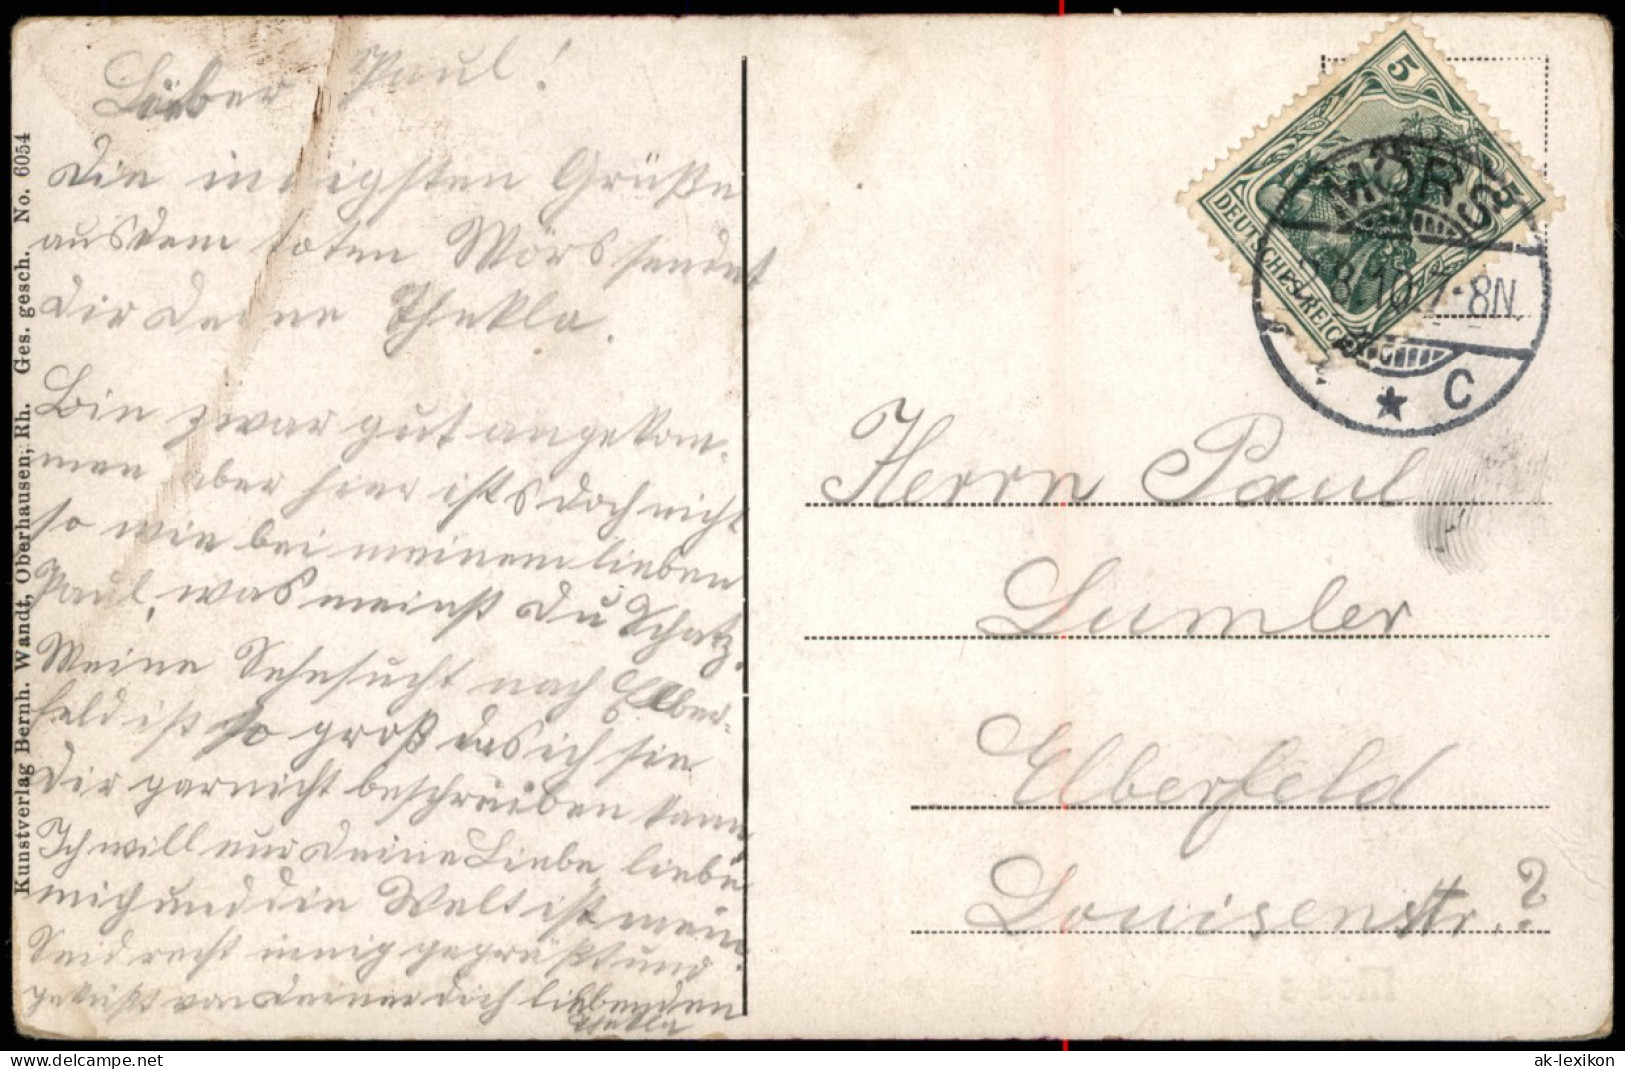 Lieber Paul!
Die innigsten Grüße
aus dem toten Mörs sendet
Dir Deine Thekla.
Bin zwar gut angekom-
men aber hier ists doch nicht
so wie bei meinem lieben
Paul, was meinst Du Schatz.
Meine Sehnsucht nach Elber-
feld ist so groß das ich sie
Dir garnicht beschreiben kann
Ich will nur Deine Liebe, liebe
mich und die Welt ist mein.
Seid recht innig gegrüßt und
geküßt von Deiner Dich liebenden
Thekla
Kunstverlag Bernh. Wandt, Oberhausen, Rh. Ges. gesch. No. 6054
5 5
DEUTSCHES REICH
MÖRS
8.10. 7-8N.
* C
Herrn Paul
Lumler
Elberfeld
Louisenstr. ?
ak-lexikon